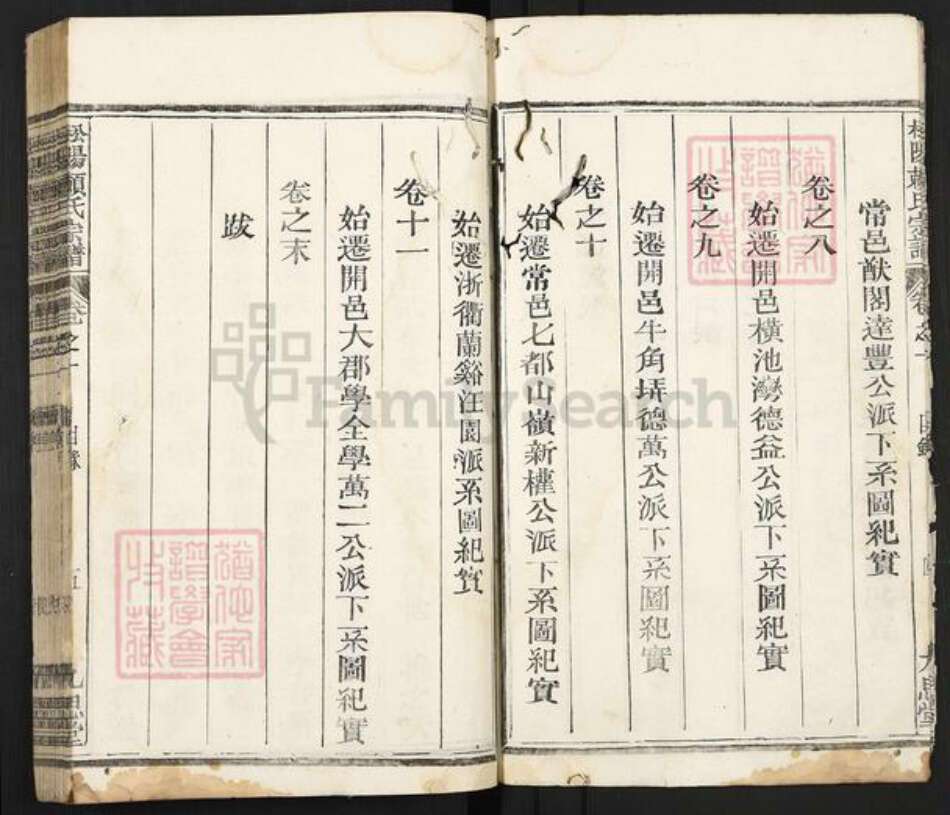 常邑猷閣達豐公派下系圖紀實
卷之八
始遷開邑橫池灣德益公派下系圖紀實
卷之九
始遷開邑牛角塝德萬公派下系圖紀實
卷之十
始遷常邑七都山嶺新權公派下系圖紀實
始遷浙衢蘭谿汪園派系圖紀實
卷十一
始遷開邑大郡學全學萬二公派下系圖紀實
卷之末
跋
松陽賴氏宗譜
卷之一
目錄
五
九思堂
猶他家譜學會收藏
FamilySearch